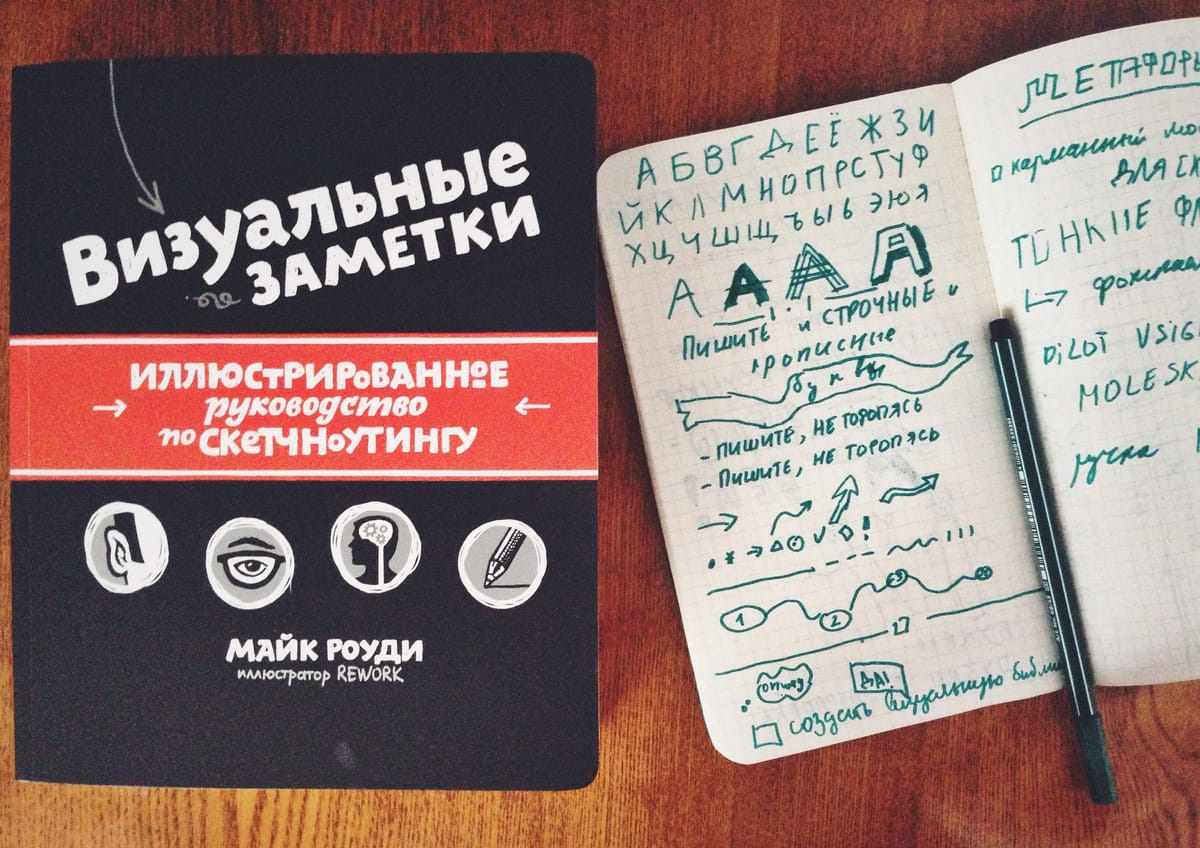 Визуальные
заметки
ИЛЛЮСТРИРОВАННОЕ
руководство
по СКЕТЧНОУТИНГУ
МАЙК РОУДИ
иллюстратор REWORK
А Б В Г Д Е Ё Ж З И
Й К Л М Н О П Р С Т У Ф
Х Ц Ч Ш Щ Ъ Ы Ь Э Ю Я
А А А А
ПИШИТЕ И СТРОЧНЫЕ И
прописные
буквы
- ПИШИТЕ, НЕ ТОРОПЯСЬ
- ПИШИТЕ, НЕ ТОРОПЯСЬ
1 2 3
ДА!
создать визуальную
МЕТАФОРЫ
карманный
ДЛЯ
PILOT
MOLESK
ручка